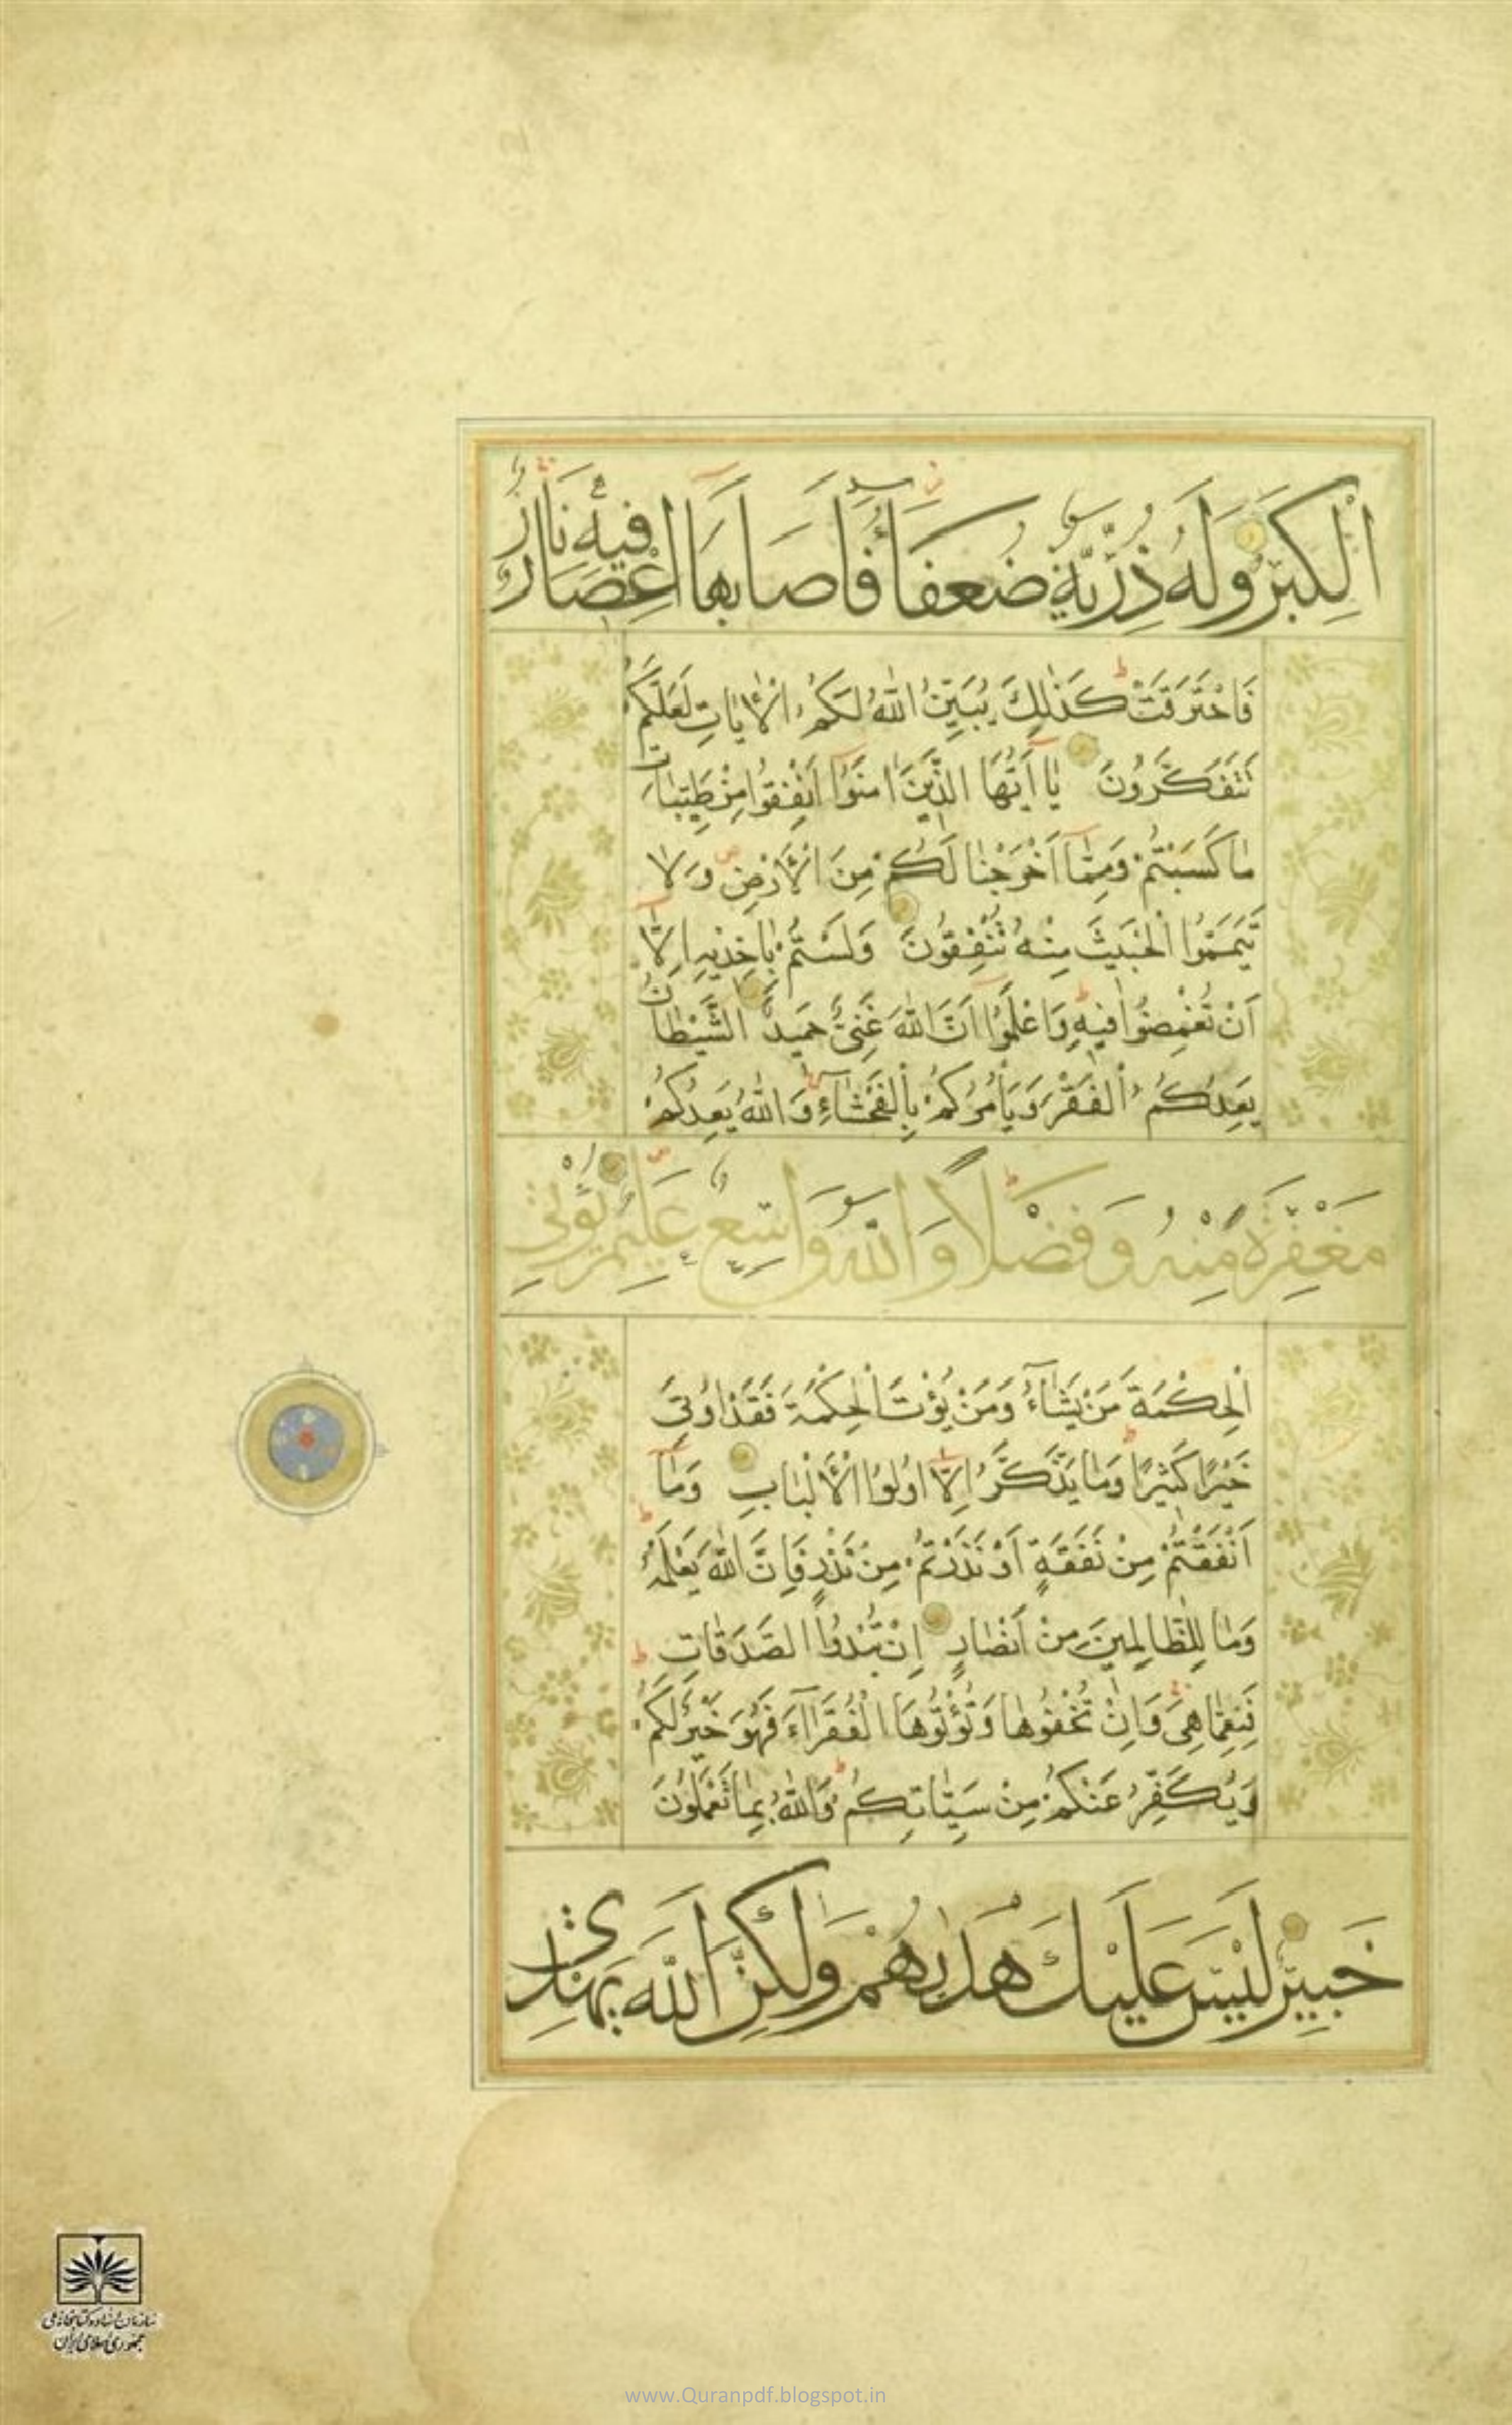 الْكِبَرُ وَلَهُ ذُرِّيَّةٌ ضُعَفَآءُ فَاَصَابَهَا اِعْصَارٌ فِيهِ نَارٌ
فَاحْتَرَقَتْ كَذٰلِكَ يُبَيِّنُ اللّٰهُ لَكُمُ الْاٰيَاتِ لَعَلَّكُمْ
تَتَفَكَّرُونَ يَا اَيُّهَا الَّذِينَ اٰمَنُوا اَنْفِقُوا مِنْ طَيِّبَاتِ
مَا كَسَبْتُمْ وَمِمَّا اَخْرَجْنَا لَكُمْ مِنَ الْاَرْضِ وَلَا
تَيَمَّمُوا الْخَبِيثَ مِنْهُ تُنْفِقُونَ وَلَسْتُمْ بِاٰخِذِيهِ اِلَّا
اَنْ تُغْمِضُوا فِيهِ وَاعْلَمُوا اَنَّ اللّٰهَ غَنِيٌّ حَمِيدٌ الشَّيْطَانُ
يَعِدُكُمُ الْفَقْرَ وَيَأْمُرُكُمْ بِالْفَحْشَآءِ وَاللّٰهُ يَعِدُكُمْ
مَغْفِرَةً مِنْهُ وَفَضْلًا وَاللّٰهُ وَاسِعٌ عَلِيمٌ يُؤْتِي
الْحِكْمَةَ مَنْ يَشَآءُ وَمَنْ يُؤْتَ الْحِكْمَةَ فَقَدْ اُوتِيَ
خَيْرًا كَثِيرًا وَمَا يَذَّكَّرُ اِلَّا اُولُوا الْاَلْبَابِ وَمَا
اَنْفَقْتُمْ مِنْ نَفَقَةٍ اَوْ نَذَرْتُمْ مِنْ نَذْرٍ فَاِنَّ اللّٰهَ يَعْلَمُهُ
وَمَا لِلظَّالِمِينَ مِنْ اَنْصَارٍ اِنْ تُبْدُوا الصَّدَقَاتِ
فَنِعِمَّا هِيَ وَاِنْ تُخْفُوهَا وَتُؤْتُوهَا الْفُقَرَآءَ فَهُوَ خَيْرٌ لَكُمْ
وَيُكَفِّرُ عَنْكُمْ مِنْ سَيِّئَاتِكُمْ وَاللّٰهُ بِمَا تَعْمَلُونَ
خَبِيرٌ لَيْسَ عَلَيْكَ هُدٰيهُمْ وَلٰكِنَّ اللّٰهَ يَهْدِي
سازمان اسناد و کتابخانه ملی
جمهوری اسلامی ایران
www.Quranpdf.blogspot.in